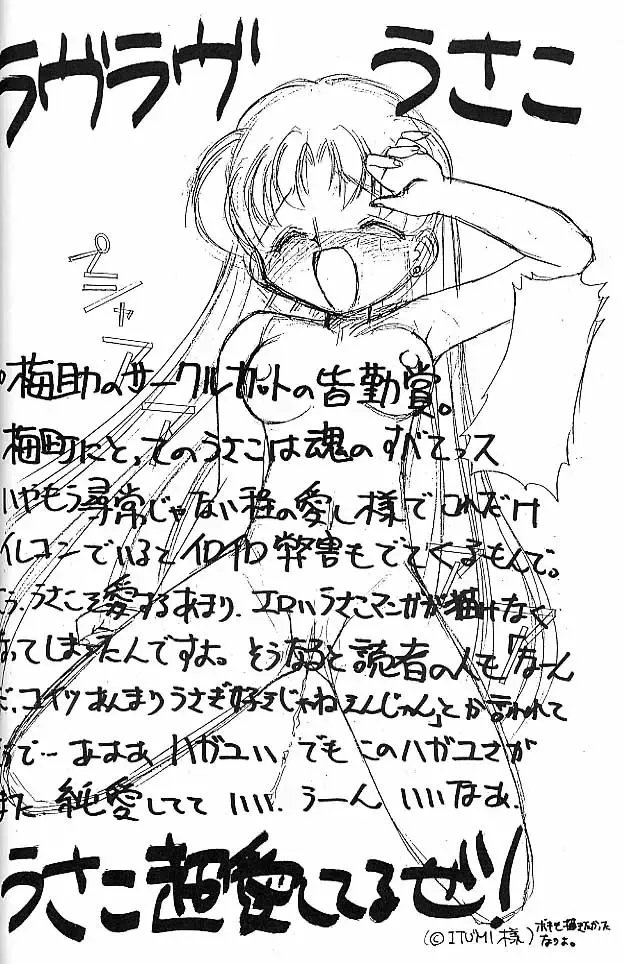 ラヴラヴ うさこ
梅助のサークルカットの皆勤賞。
梅町にとってのうさこは魂のすべてっス
いやもう尋常じゃない程の愛し様でこれだけ
イレコンでいるとイロイロ弊害もでてくるもんで。
うさこを愛するあまり、エロいうさこマンガが描けなく
なってしまったんですよ。そうなると読者の人も「なーん
だ、コイツあんまりうさぎ好きじゃねえんじゃん」とか言われて
で…あああ、ハガユい でもこのハガユさが
また純愛してて いい。うーん いいなあ。
うさこ超愛してるぜ!
(©ITUMI様)